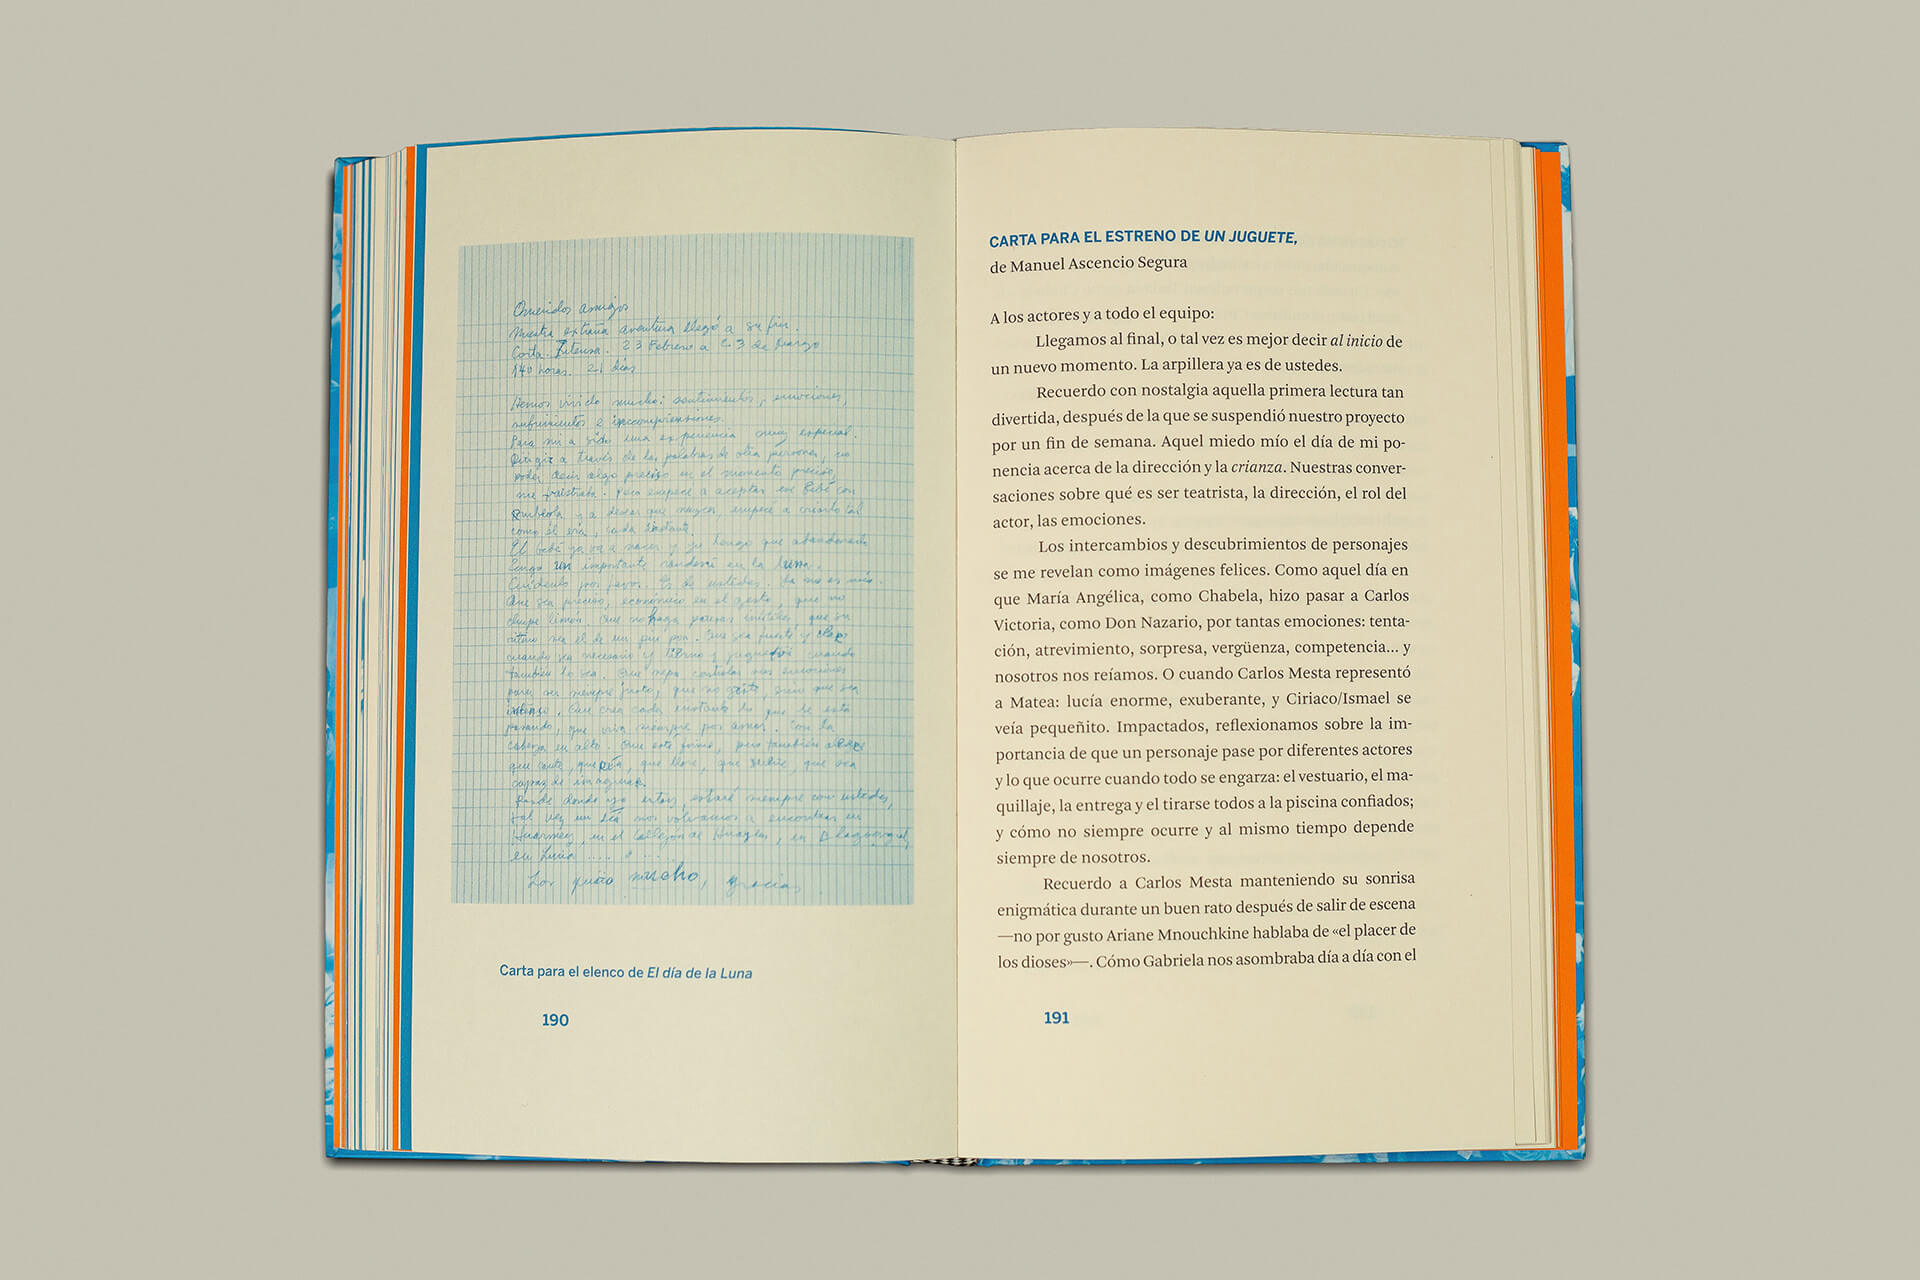 Queridos amigos
Nuestra extraña aventura llegó a su fin.
Corta. Intensa. 23 Febrero a 23 de Marzo
140 horas. 21 días
Hemos vivido mucho: sentimientos, emociones,
sufrimientos e incomprensiones.
Para mi a sido una experiencia muy especial.
Dirigir a través de las palabras de otra persona, no
poder decir algo preciso en el momento preciso,
me frustraba. Pero empecé a aceptar ese bebé con
rubéola y a desear que nazca, empecé a quererlo tal
como él era, cada instante.
El bebé ya va a nacer y yo tengo que abandonarlo
Tengo un importante rendevú en la luna.
Cuídenlo por favor. Es de ustedes. Ya no es mío.
Que sea preciso, económico en el gesto, que no
chupe limón. Que no haga pausas inútiles, que su
ritmo sea el de un pin pon. Que sea fuerte y claro
cuando sea necesario y tierno y juguetón cuando
también lo sea. Que sepa controlar sus emociones
para ser siempre justo, que no grite, sino que sea
intenso. Que crea cada instante lo que le está
pasando, que viva siempre por amor. Con la
cabeza en alto. Que esté firme, pero también alegre
que cante, que ría, que llore, que sueñe, que sea
capaz de imaginar.
Desde donde yo estoy, estaré siempre con ustedes,
tal vez un día nos volvamos a encontrar en
Huarmey, en el Callejón de Huaylas, en
en Lima
Los quiero mucho, gracias
Carta para el elenco de El día de la Luna
190
CARTA PARA EL ESTRENO DE UN JUGUETE,
de Manuel Ascencio Segura
A los actores y a todo el equipo:
Llegamos al final, o tal vez es mejor decir al inicio de
un nuevo momento. La arpillera ya es de ustedes.
Recuerdo con nostalgia aquella primera lectura tan
divertida, después de la que se suspendió nuestro proyecto
por un fin de semana. Aquel miedo mío el día de mi po-
nencia acerca de la dirección y la crianza. Nuestras conver-
saciones sobre qué es ser teatrista, la dirección, el rol del
actor, las emociones.
Los intercambios y descubrimientos de personajes
se me revelan como imágenes felices. Como aquel día en
que María Angélica, como Chabela, hizo pasar a Carlos
Victoria, como Don Nazario, por tantas emociones: tenta-
ción, atrevimiento, sorpresa, vergüenza, competencia... y
nosotros nos reíamos. O cuando Carlos Mesta representó
a Matea: lucía enorme, exuberante, y Ciriaco/Ismael se
veía pequeñito. Impactados, reflexionamos sobre la im-
portancia de que un personaje pase por diferentes actores
y lo que ocurre cuando todo se engarza: el vestuario, el ma-
quillaje, la entrega y el tirarse todos a la piscina confiados;
y cómo no siempre ocurre y al mismo tiempo depende
siempre de nosotros.
Recuerdo a Carlos Mesta manteniendo su sonrisa
enigmática durante un buen rato después de salir de escena
—no por gusto Ariane Mnouchkine hablaba de «el placer de
los dioses»—. Cómo Gabriela nos asombraba día a día con el
191